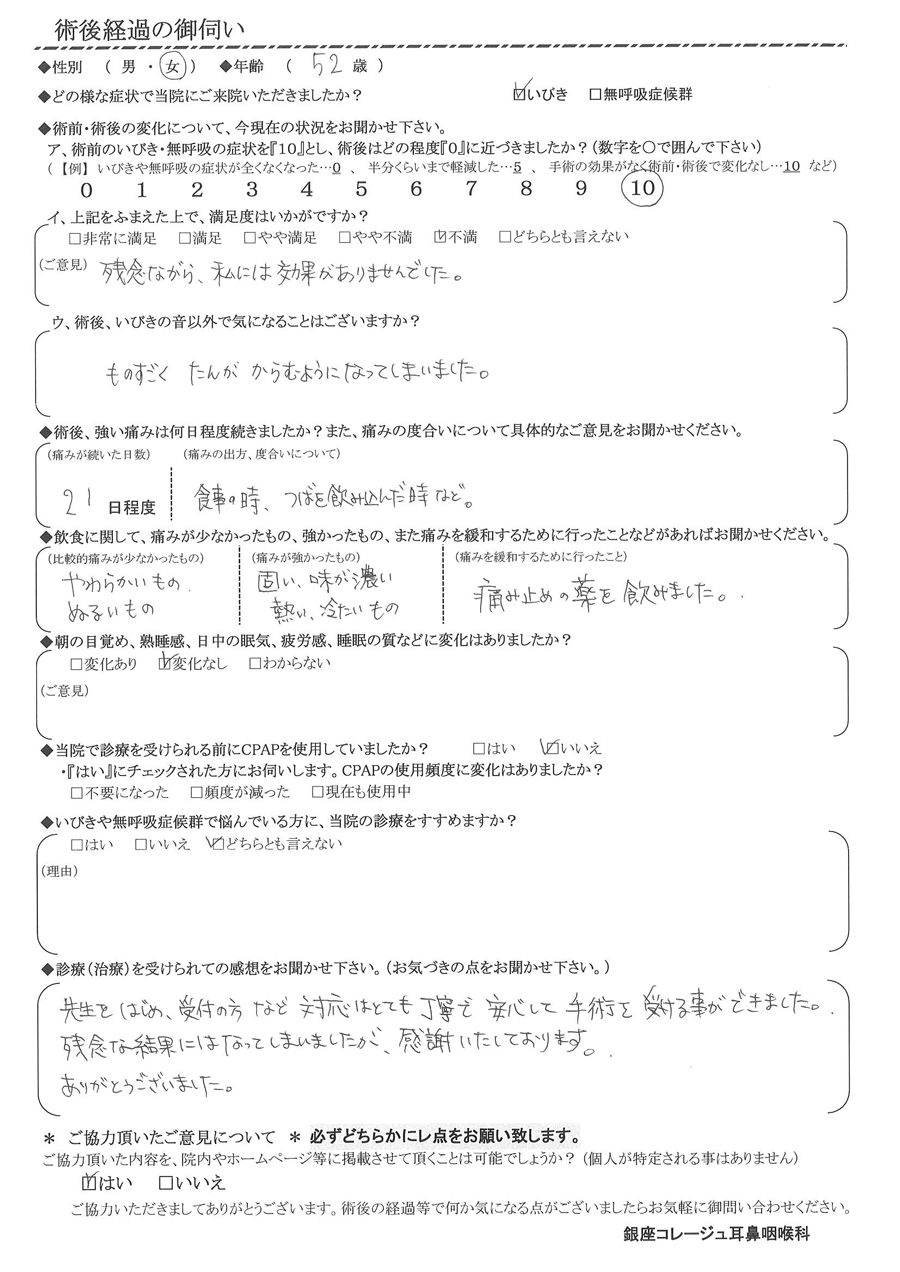 術後経過の御伺い
◆性別 （ 男 ・ 女 ） ◆年齢 （ 52 歳 ）
◆どの様な症状で当院にご来院いただきましたか？ ☑いびき □無呼吸症候群
◆術前・術後の変化について、今現在の状況をお聞かせ下さい。
ア、術前のいびき・無呼吸の症状を『10』とし、術後はどの程度『0』に近づきましたか？（数字を○で囲んで下さい）
（【例】 いびきや無呼吸の症状が全くなくなった…0 、 半分くらいまで軽減した…5 、 手術の効果がなく術前・術後で変化なし…10 など）
0 1 2 3 4 5 6 7 8 9 10
イ、上記をふまえた上で、満足度はいかがですか？
□非常に満足 □満足 □やや満足 □やや不満 ☑不満 □どちらとも言えない
（ご意見） 残念ながら、私には効果がありませんでした。
ウ、術後、いびきの音以外で気になることはございますか？
ものすごく たんが からむようになってしまいました。
◆術後、強い痛みは何日程度続きましたか？また、痛みの度合いについて具体的なご意見をお聞かせください。
（痛みが続いた日数） （痛みの出方、度合いについて）
21 日程度 食事の時、つばを飲み込んだ時など。
◆飲食に関して、痛みが少なかったもの、強かったもの、また痛みを緩和するために行ったことなどがあればお聞かせください。
（比較的痛みが少なかったもの） （痛みが強かったもの） （痛みを緩和するために行ったこと）
やわらかいもの 固い、味が濃い 痛み止めの薬を飲みました。
ぬるいもの 熱い、冷たいもの
◆朝の目覚め、熟睡感、日中の眠気、疲労感、睡眠の質などに変化はありましたか？
□変化あり ☑変化なし □わからない
（ご意見）
◆当院で診療を受けられる前にCPAPを使用していましたか？ □はい ☑いいえ
・『はい』にチェックされた方にお伺いします。CPAPの使用頻度に変化はありましたか？
□不要になった □頻度が減った □現在も使用中
◆いびきや無呼吸症候群で悩んでいる方に、当院の診療をすすめますか？
□はい □いいえ ☑どちらとも言えない
（理由）
◆診療（治療）を受けられての感想をお聞かせ下さい。（お気づきの点をお聞かせ下さい。）
先生をはじめ、受付の方など対応はとても丁寧で安心して手術を受ける事ができました。
残念な結果にはなってしまいましたが、感謝いたしております。
ありがとうございました。
＊ ご協力頂いたご意見について ＊ 必ずどちらかにレ点をお願い致します。
ご協力頂いた内容を、院内やホームページ等に掲載させて頂くことは可能でしょうか？（個人が特定される事はありません）
☑はい □いいえ
ご協力いただきましてありがとうございます。術後の経過等で何か気になる点がございましたらお気軽に御問い合わせください。
銀座コレージュ耳鼻咽喉科